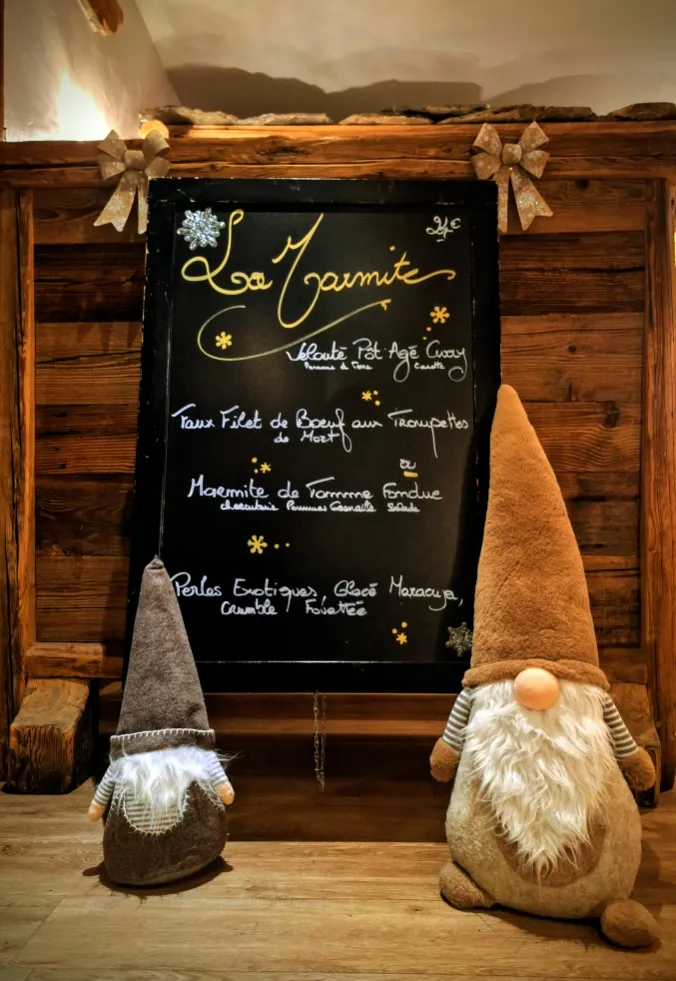 La Marmite
Velouté Pot Agé Curry
Pommes de Terre Carotte
Faux Filet de Boeuf aux Trompettes
de Mort
ou
Marmite de Tomme Fondue
charcuterie Pommes Grenaille Salade
Perles Exotiques, Glacé Maracuja,
Crumble Fouettée